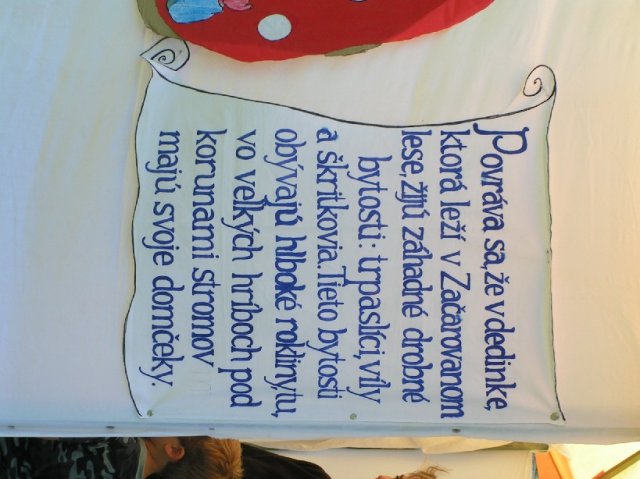 Povráva sa, že v dedinke,
ktorá leží v Začarovanom
lese, žijú záhadné drobné
bytosti: trpaslíci, víly
a škritkovia. Tieto bytosti
obývajú hlboké rokliny, tu,
vo veľkých hríboch pod
korunami stromov
majú svoje domčeky.